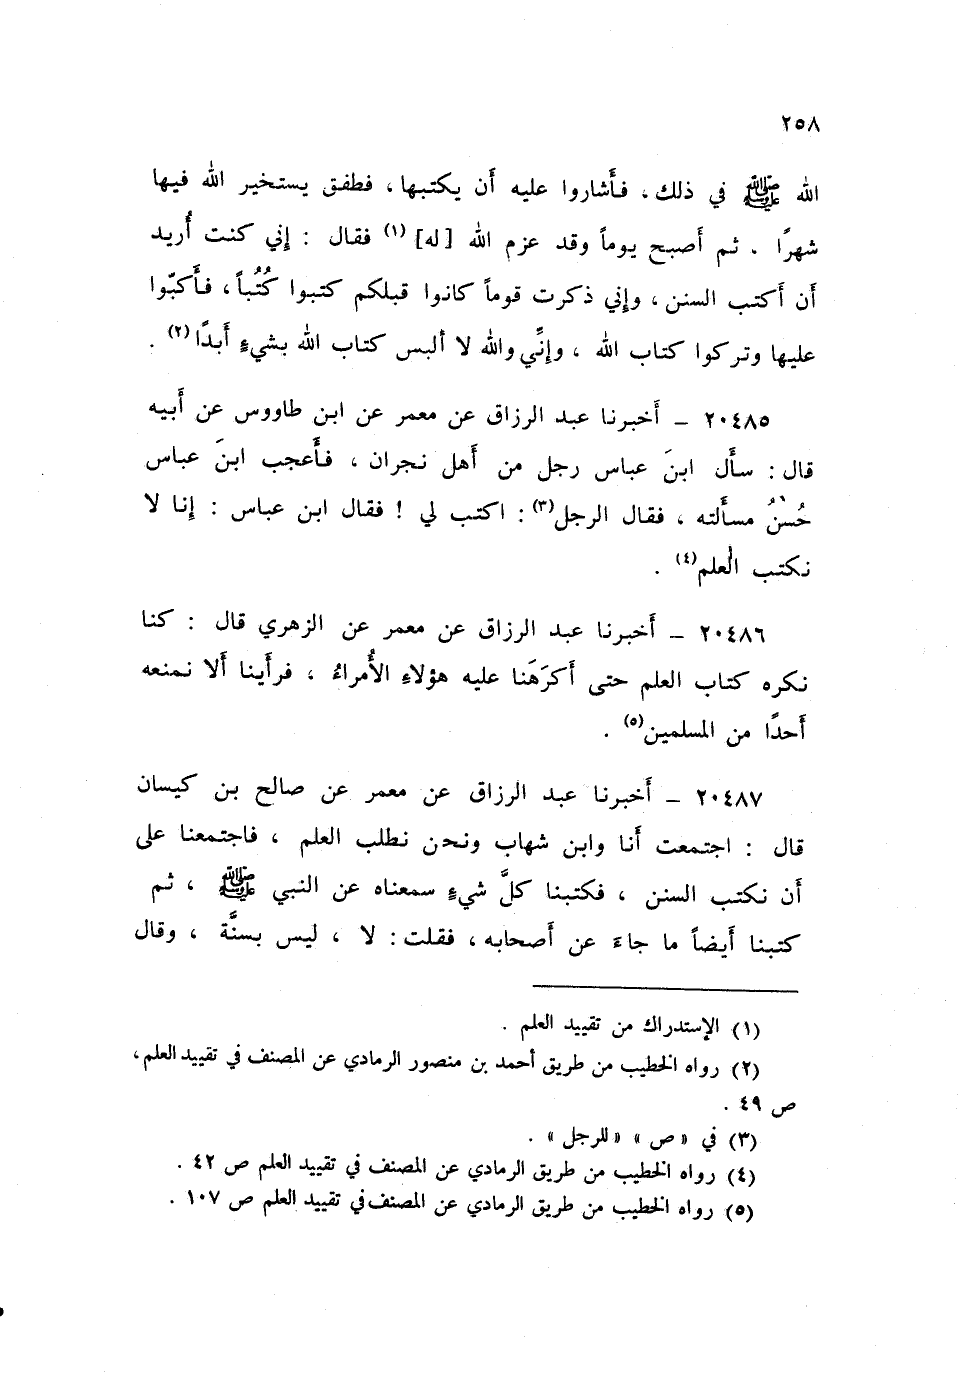 ٢٥٨
الله ﷺ في ذلك ، فأَشاروا عليه أَن يكتبها ، فطفق يستخير الله فيها
شهرًا . ثم أَصبح يوماً وقد عزم الله [له] (١) فقال : إني كنت أُريد
أَن أَكتب السنن ، وإني ذكرت قوماً كانوا قبلكم كتبوا كُتُباً ، فأَكبّوا
عليها وتركوا كتاب الله ، وإنِّي والله لا ألبس كتاب الله بشيءٍ أَبدًا (٢) .
٢٠٤٨٥ – أَخبرنا عبد الرزاق عن معمر عن ابن طاووس عن أَبيه
قال : سأَل ابنَ عباس رجل من أَهل نجران ، فأَعجب ابنَ عباس
حُسْنُ مسأَلته ، فقال الرجل (٣) : اكتب لي ! فقال ابن عباس : إنا لا
نكتب العلم (٤) .
٢٠٤٨٦ – أَخبرنا عبد الرزاق عن معمر عن الزهري قال : كنا
نكره كتاب العلم حتى أَكرَهَنا عليه هؤلاءِ الأُمراءُ ، فرأَينا ألا نمنعه
أَحدًا من المسلمين (٥) .
٢٠٤٨٧ – أَخبرنا عبد الرزاق عن معمر عن صالح بن كيسان
قال : اجتمعت أَنا وابن شهاب ونحن نطلب العلم ، فاجتمعنا على
أَن نكتب السنن ، فكتبنا كلَّ شيءٍ سمعناه عن النبي ﷺ ، ثم
كتبنا أَيضاً ما جاءَ عن أَصحابه ، فقلت : لا ، ليس بسنَّة ، وقال
(١) الإستدراك من تقييد العلم .
(٢) رواه الخطيب من طريق أحمد بن منصور الرمادي عن المصنف في تقييد العلم ،
ص ٤٩ .
(٣) في «ص» «للرجل» .
(٤) رواه الخطيب من طريق الرمادي عن المصنف في تقييد العلم ص ٤٢ .
(٥) رواه الخطيب من طريق الرمادي عن المصنف في تقييد العلم ص ١٠٧ .